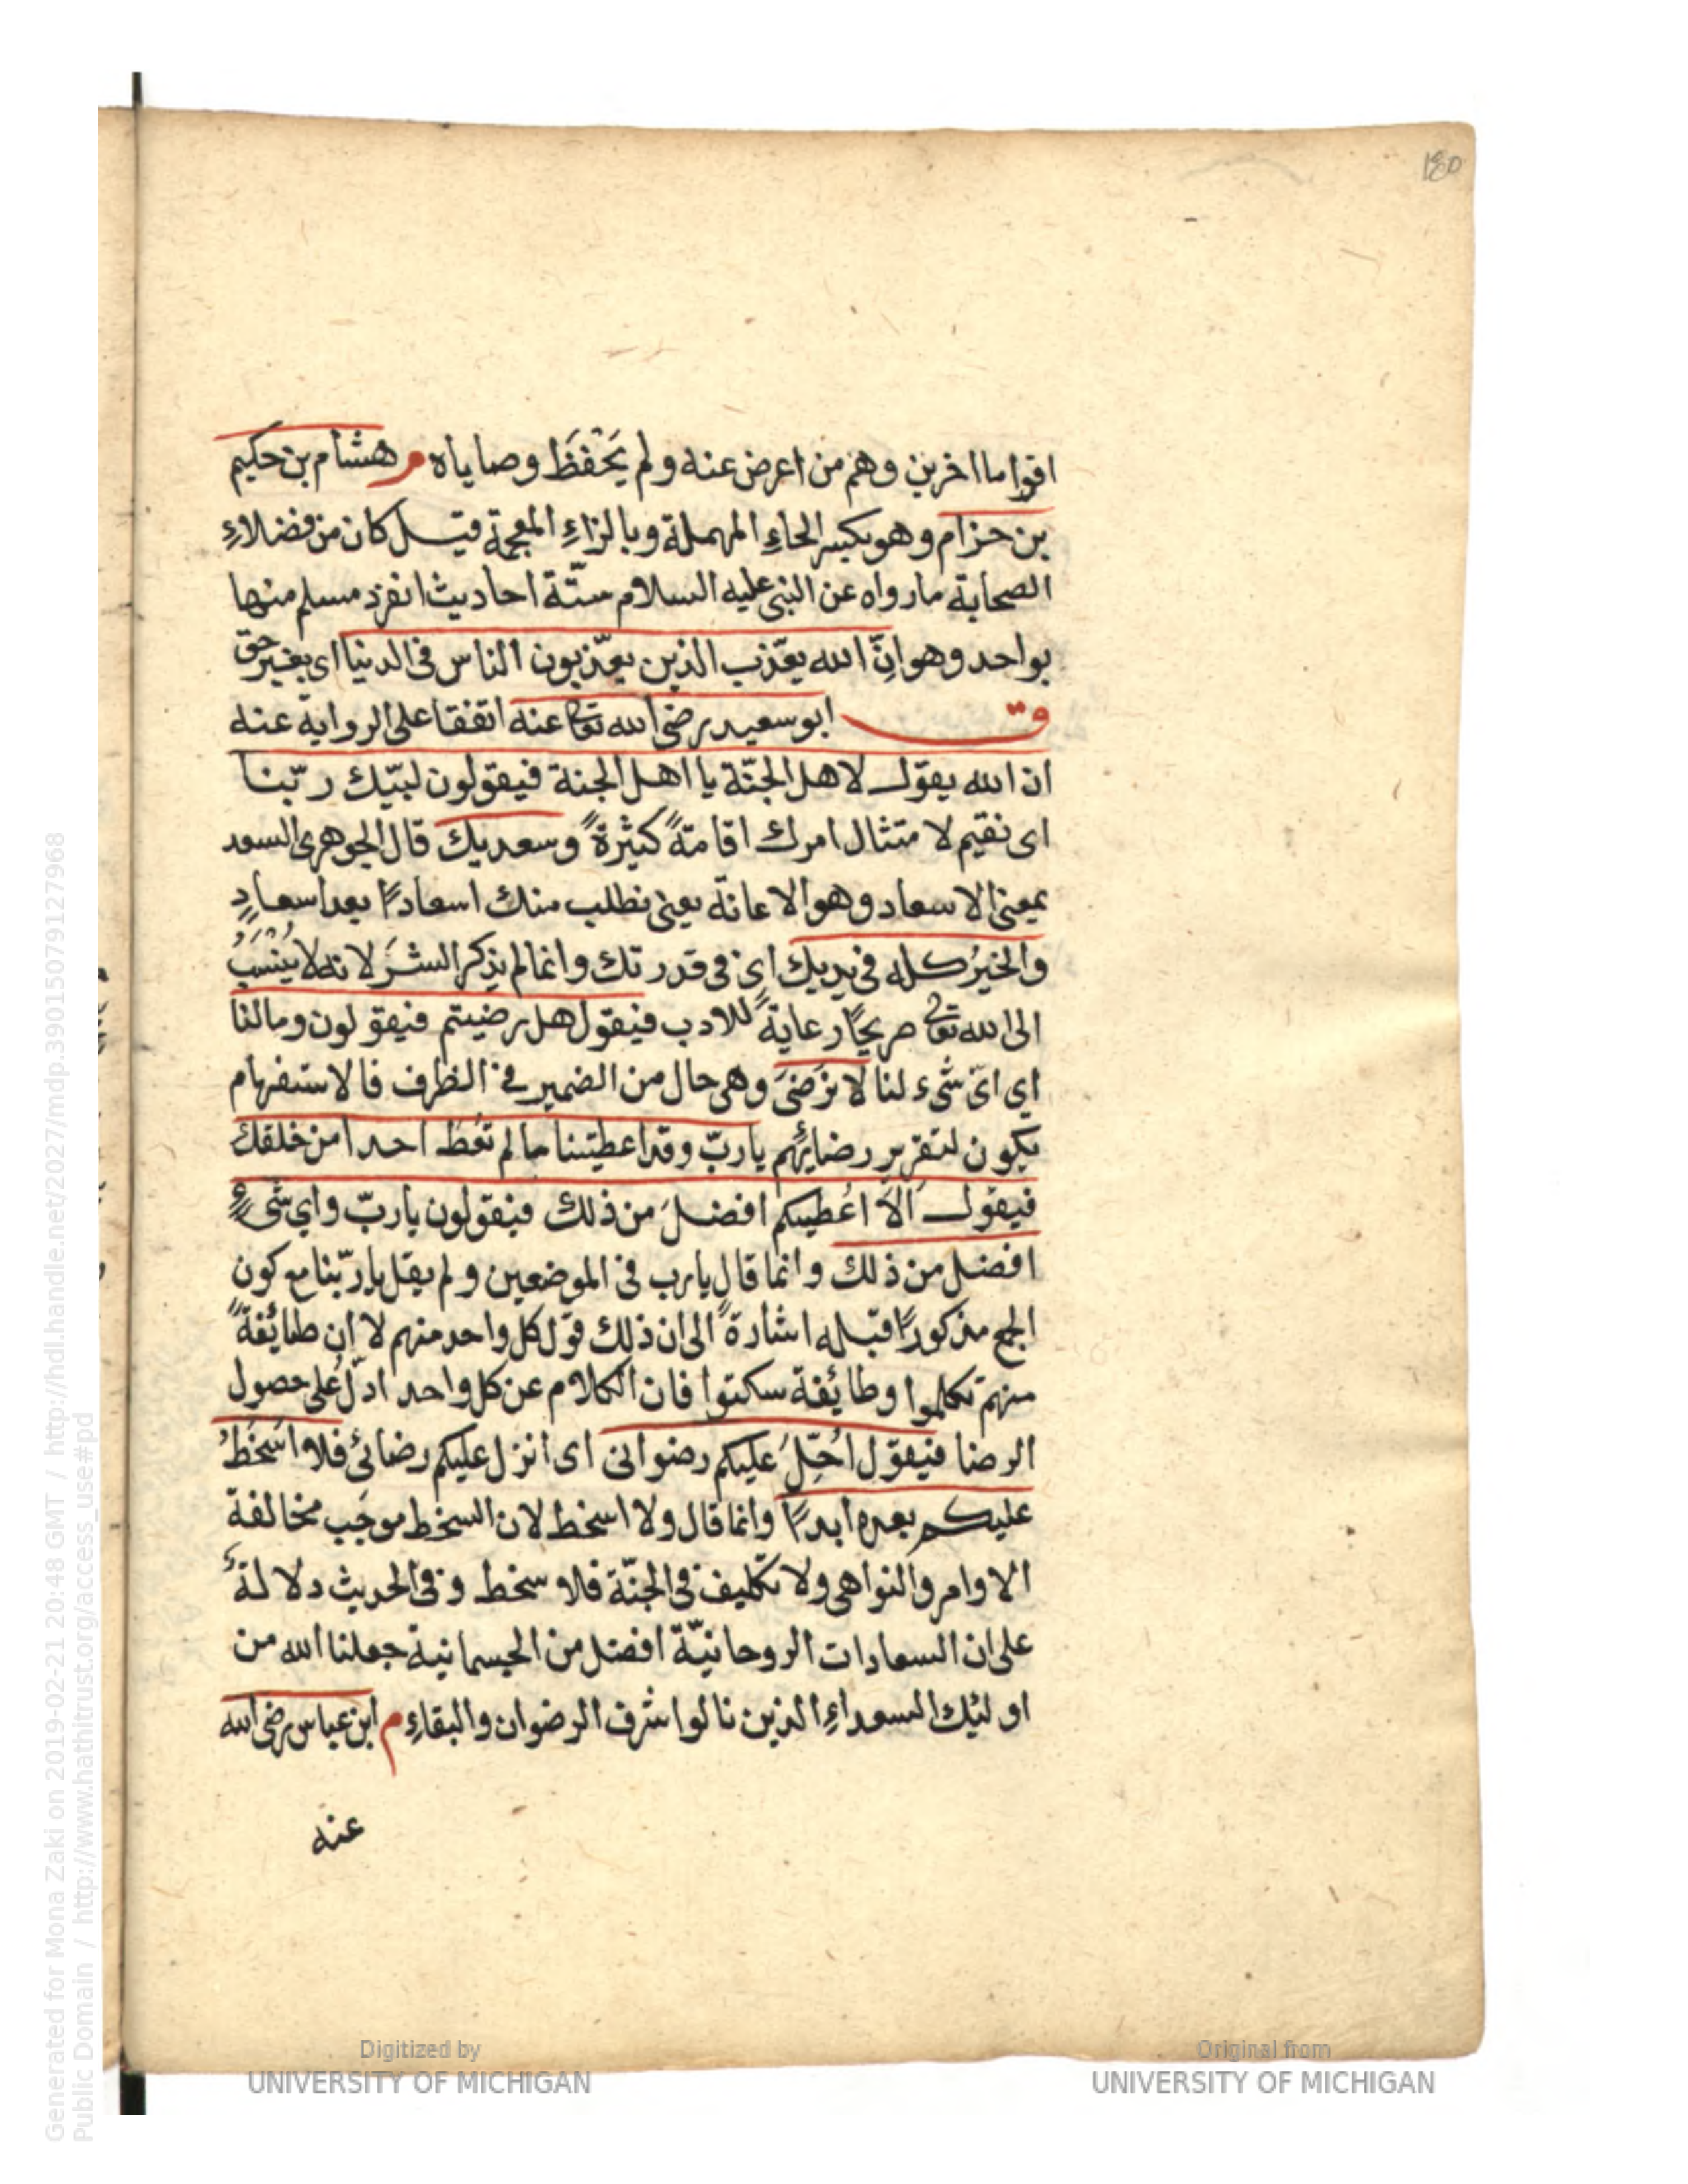 180
اقواما اخرين وهم من اعرض عنه ولم يَحْفَظَ وصاياه م هشام بن حكيم
بن حزام وهو بكسر الحاءِ المهملة وبالزاءِ المعجمة قيل كان من فضلاءِ
الصحابة ما رواه عن النبى عليه السلام ستّة احاديث انفرد مسلم منها
بواحد وهو انّ الله يعذّب الذين يعذّبون الناس فى الدنيا اى بغير حق
ق ابو سعيد رضى الله تعا عنه اتفقا على الرواية عنه
ان الله يقول لاهل الجنّة يا اهل الجنة فيقولون لبّيك ربّنا
اى نقيم لامتثال امرك اقامةً كثيرةً وسعديك قال الجوهرى السعد
بمعنى الاسعاد وهو الاعانة يعنى نطلب منك اسعادًا بعد اسعادٍ
والخيرُ كله فى يديك اى فى قدرتك وانما لم يذكر الشرَ لانه لا يُنْسَبُ
الى الله تعا صريحًا رعايةً للادب فيقول هل رضيتم فيقولون وما لنا
اى اىّ شىء لنا لا نَرْضىَ وهى حال من الضمير فى الظرف فالاستفهام
يكون لتقرير رضائهم يا ربّ وقد اعطيتنا ما لم تُعْطَ احدا من خلقك
فيقول اَلاَ اُعطيكم افضلَ من ذلك فيقولون يا ربّ واى شىءٍ
افضل من ذلك وانما قال يا رب فى الموضعين ولم يقل يا ربّنا مع كون
الجمع مذكورًا قبله اشارةً الى ان ذلك قول كل واحد منهم لا ان طائفةً
منهم تكلموا وطائفة سكتوا فان الكلام عن كل واحد ادلُّ على حصول
الرضا فيقول اُحِلُّ عليكم رضوانى اى انزل عليكم رضائى فلا اَسْخَطُ
عليكم بعده ابدًا وانما قال ولا اسخط لان السخط موجَب مخالفة
الاوامر والنواهى ولا تكليف فى الجنّة فلا سخط وفى الحديث دلالةٌ
على ان السعادات الروحانيّة افضل من الجسمانية جعلنا الله من
اولئك السعداءِ الذين نالوا شرف الرضوان والبقاءِ م ابن عباس رضى الله
عنه
Generated for Mona Zaki on 2019-02-21 20:48 GMT / http://hdl.handle.net/2027/mdp.39015079127968
Public Domain / http://www.hathitrust.org/access_use#pd
Digitized by
UNIVERSITY OF MICHIGAN
Original from
UNIVERSITY OF MICHIGAN